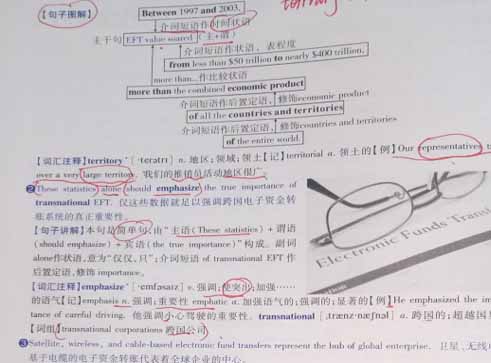 【句子图解】
Between 1997 and 2003,
介词短语作时间状语
主干句 EFT value soared (主+谓)
介词短语作状语，表程度
from less than $50 trillion to nearly $400 trillion,
more than...作比较状语
more than the combined economic product
介词短语作后置定语，修饰economic product
of all the countries and territories
介词短语作后置定语，修饰countries and territories
of the entire world.
【词汇注释】territory* n. 地区；领域；领土【记】territorial a. 领土的【例】Our representatives
over a very large territory. 我们的推销员活动地区很广。
❷These statistics alone should emphasize the true importance of
transnational EFT. 仅这些数据就足以强调跨国电子资金转
账系统的真正重要性。
【句子讲解】本句是简单句，由“主语(These statistics) + 谓语
(should emphasize) + 宾语(the true importance)”构成。副词
alone作状语，意为“仅仅，只”；介词短语 of transnational EFT 作
后置定语，修饰 importance。
【词汇注释】emphasize* [ˈemfəsaɪz] v. 强调；使突出；加强……
的语气【记】emphasis n. 强调；重要性 emphatic a. 加强语气的；强调的；显著的【例】He emphasized the im
tance of careful driving. 他强调小心驾驶的重要性。transnational [ˌtrænzˈnæʃnəl] a. 跨国的；超越国
【词组】transnational corporations 跨国公司
❸Satellite, wireless, and cable-based electronic fund transfers represent the hub of global enterprise. 卫星、无线
基于电缆的电子资金转账代表着全球企业的中心。
Electronic Funds Trans